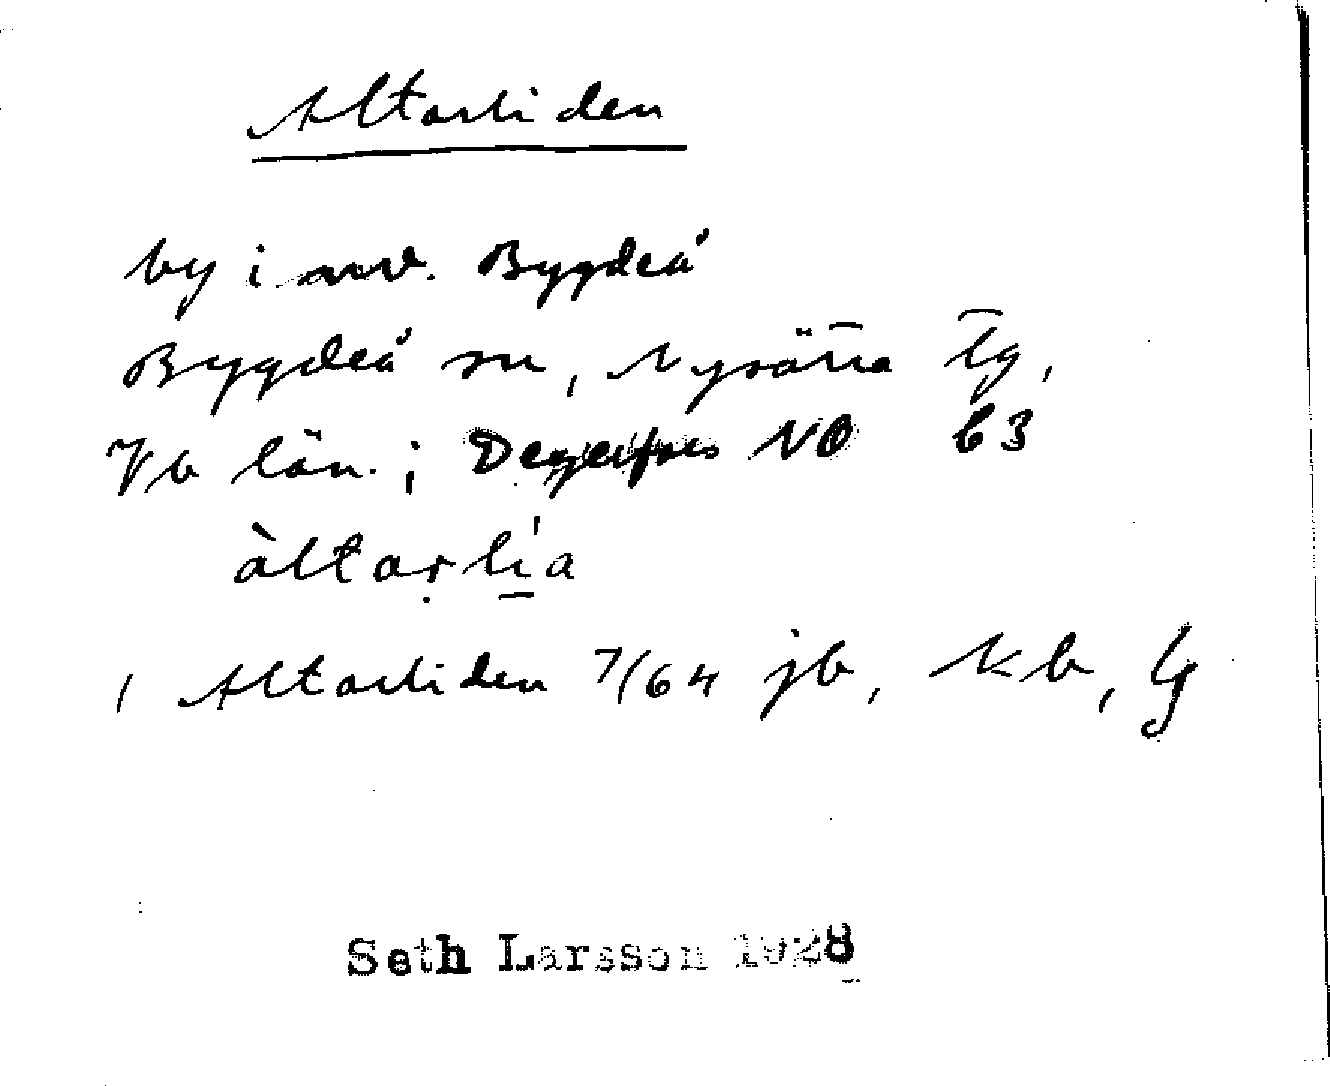 Altarliden
by i nv. Bygdeå
Bygdeå sn, Nysätra tg,
Vb län.; Degerfors NO b3
àltarlia
1 Altarliden 7/64 jb, kb,
Seth Larsson 1928